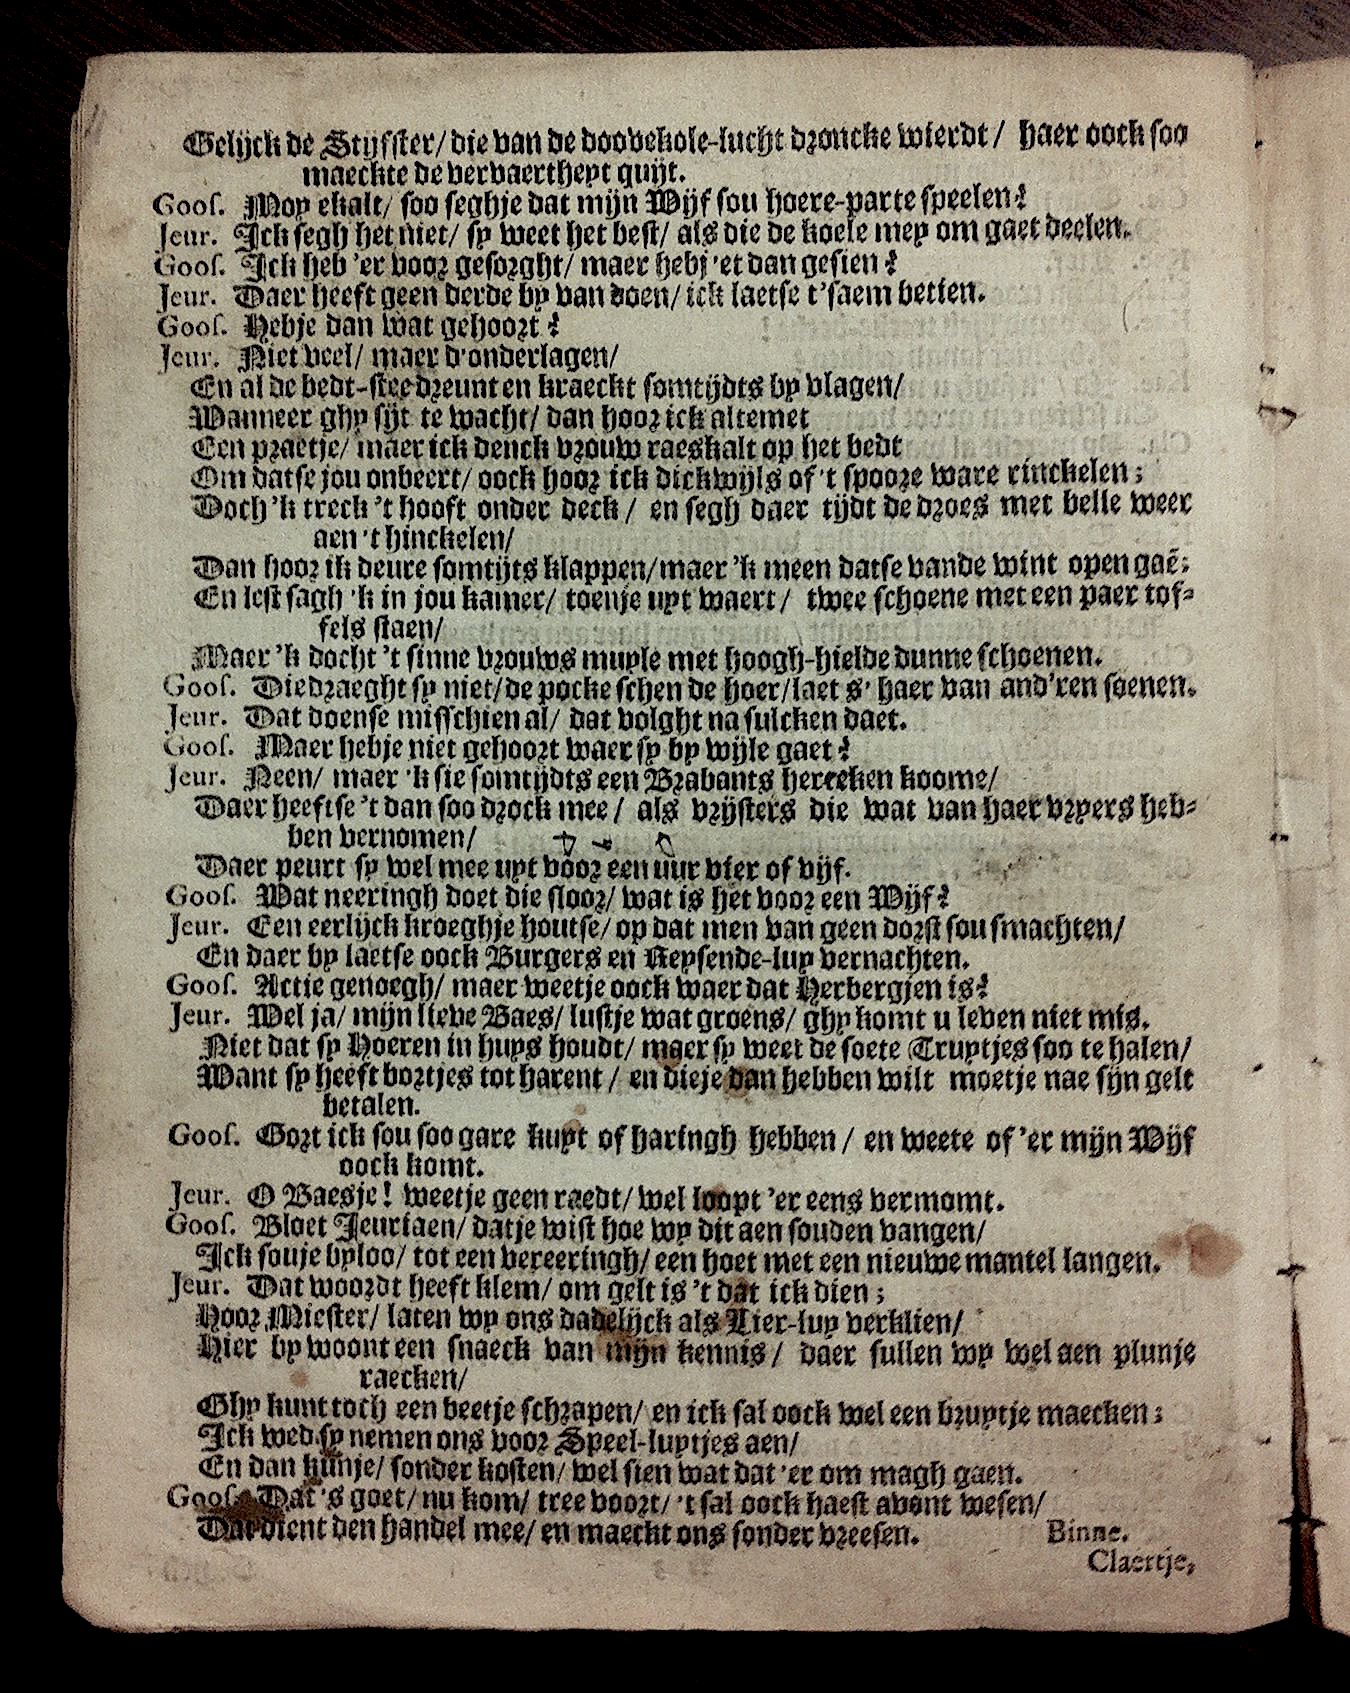 Gelijck de Stijfster/ die van de doovekole-lucht droncke wierdt/ haer oock soo
maeckte de vervaertheyt quijt.
Goos. Moy ekalt/ soo seghje dat mijn Wijf sou hoere-parte speelen?
Jeur. Ick segh het niet/ sy weet het best/ als die de koele mey om gaet deelen.
Goos. Ick heb 'er voor gesorght/ maer hebj 'et dan gesien?
Jeur. Daer heeft geen derde by van doen/ ick laetse t'saem betien.
Goos. Hebje dan wat gehoort?
Jeur. Niet veel/ maer d'onderlagen/
En al de bedt-stee dreunt en kraeckt somtijdts by vlagen/
Wanneer ghy sijt te wacht/ dan hoor ick altemet
Een praetje/ maer ick denck vrouw raeskalt op het bedt
Om datse jou onbeert/ oock hoor ick dickwijls of 't spoore ware rinckelen;
Doch 'k treck 't hooft onder deck/ en segh daer tijdt de droes met belle weer
aen 't hinckelen/
Dan hoor ik deure somtijts klappen/ maer 'k meen datse vande wint open gaē;
En lest sagh 'k in jou kamer/ toenje uyt waert/ twee schoene met een paer tof-
fels staen/
Maer 'k docht 't sinne vrouws muyle met hoogh-hielde dunne schoenen.
Goos. Die draeght sy niet/ de pocke schen de hoer/ laet s' haer van and'ren soenen.
Jeur. Dat doense misschien al/ dat volght na sulcken daet.
Goos. Maer hebje niet gehoort waer sy by wijle gaet?
Jeur. Neen/ maer 'k sie somtijdts een Brabants hereeken koome/
Daer heeftse 't dan soo drock mee/ als vrijsters die wat van haer vryers heb-
ben vernomen/
Daer peurt sy wel mee uyt voor een uur vier of vijf.
Goos. Wat neeringh doet die sloor/ wat is het voor een Wijf?
Jeur. Een eerlijck kroeghje houtse/ op dat men van geen dorst sou smachten/
En daer by laetse oock Burgers en Reysende-luy vernachten.
Goos. Actie genoegh/ maer weetje oock waer dat Herbergjen is?
Jeur. Wel ja/ mijn lieve Baes/ lustje wat groens/ ghy komt u leven niet mis.
Niet dat sy Hoeren in huys houdt/ maer sy weet de soete Truytjes soo te halen/
Want sy heeft bortjes tot harent/ en dieje dan hebben wilt moetje nae sijn gelt
betalen.
Goos. Gort ick sou soo gare kuyt of haringh hebben/ en weete of 'er mijn Wijf
oock komt.
Jeur. O Baesje! weetje geen raedt/ wel loopt 'er eens vermomt.
Goos. Bloet Jeuriaen/ datje wist hoe wy dit aen souden vangen/
Ick souje byloo/ tot een vereeringh/ een hoet met een nieuwe mantel langen.
Jeur. Dat woordt heeft klem/ om gelt is 't dat ick dien;
Hoor Miester/ laten wy ons dadelijck als Lier-luy verklien/
Hier by woont een snaeck van mijn kennis/ daer sullen wy wel aen plunje
raecken/
Ghy kunt toch een beetje schrapen/ en ick sal oock wel een bruytje maecken;
Ick wed sy nemen ons voor Speel-luytjes aen/
En dan kunje/ sonder kosten/ wel sien wat dat 'er om magh gaen.
Goos. Dat 's goet/ nu kom/ tree voort/ 't sal oock haest avont wesen/
Dat dient den handel mee/ en maeckt ons sonder vreesen. Binne.
Claertje,